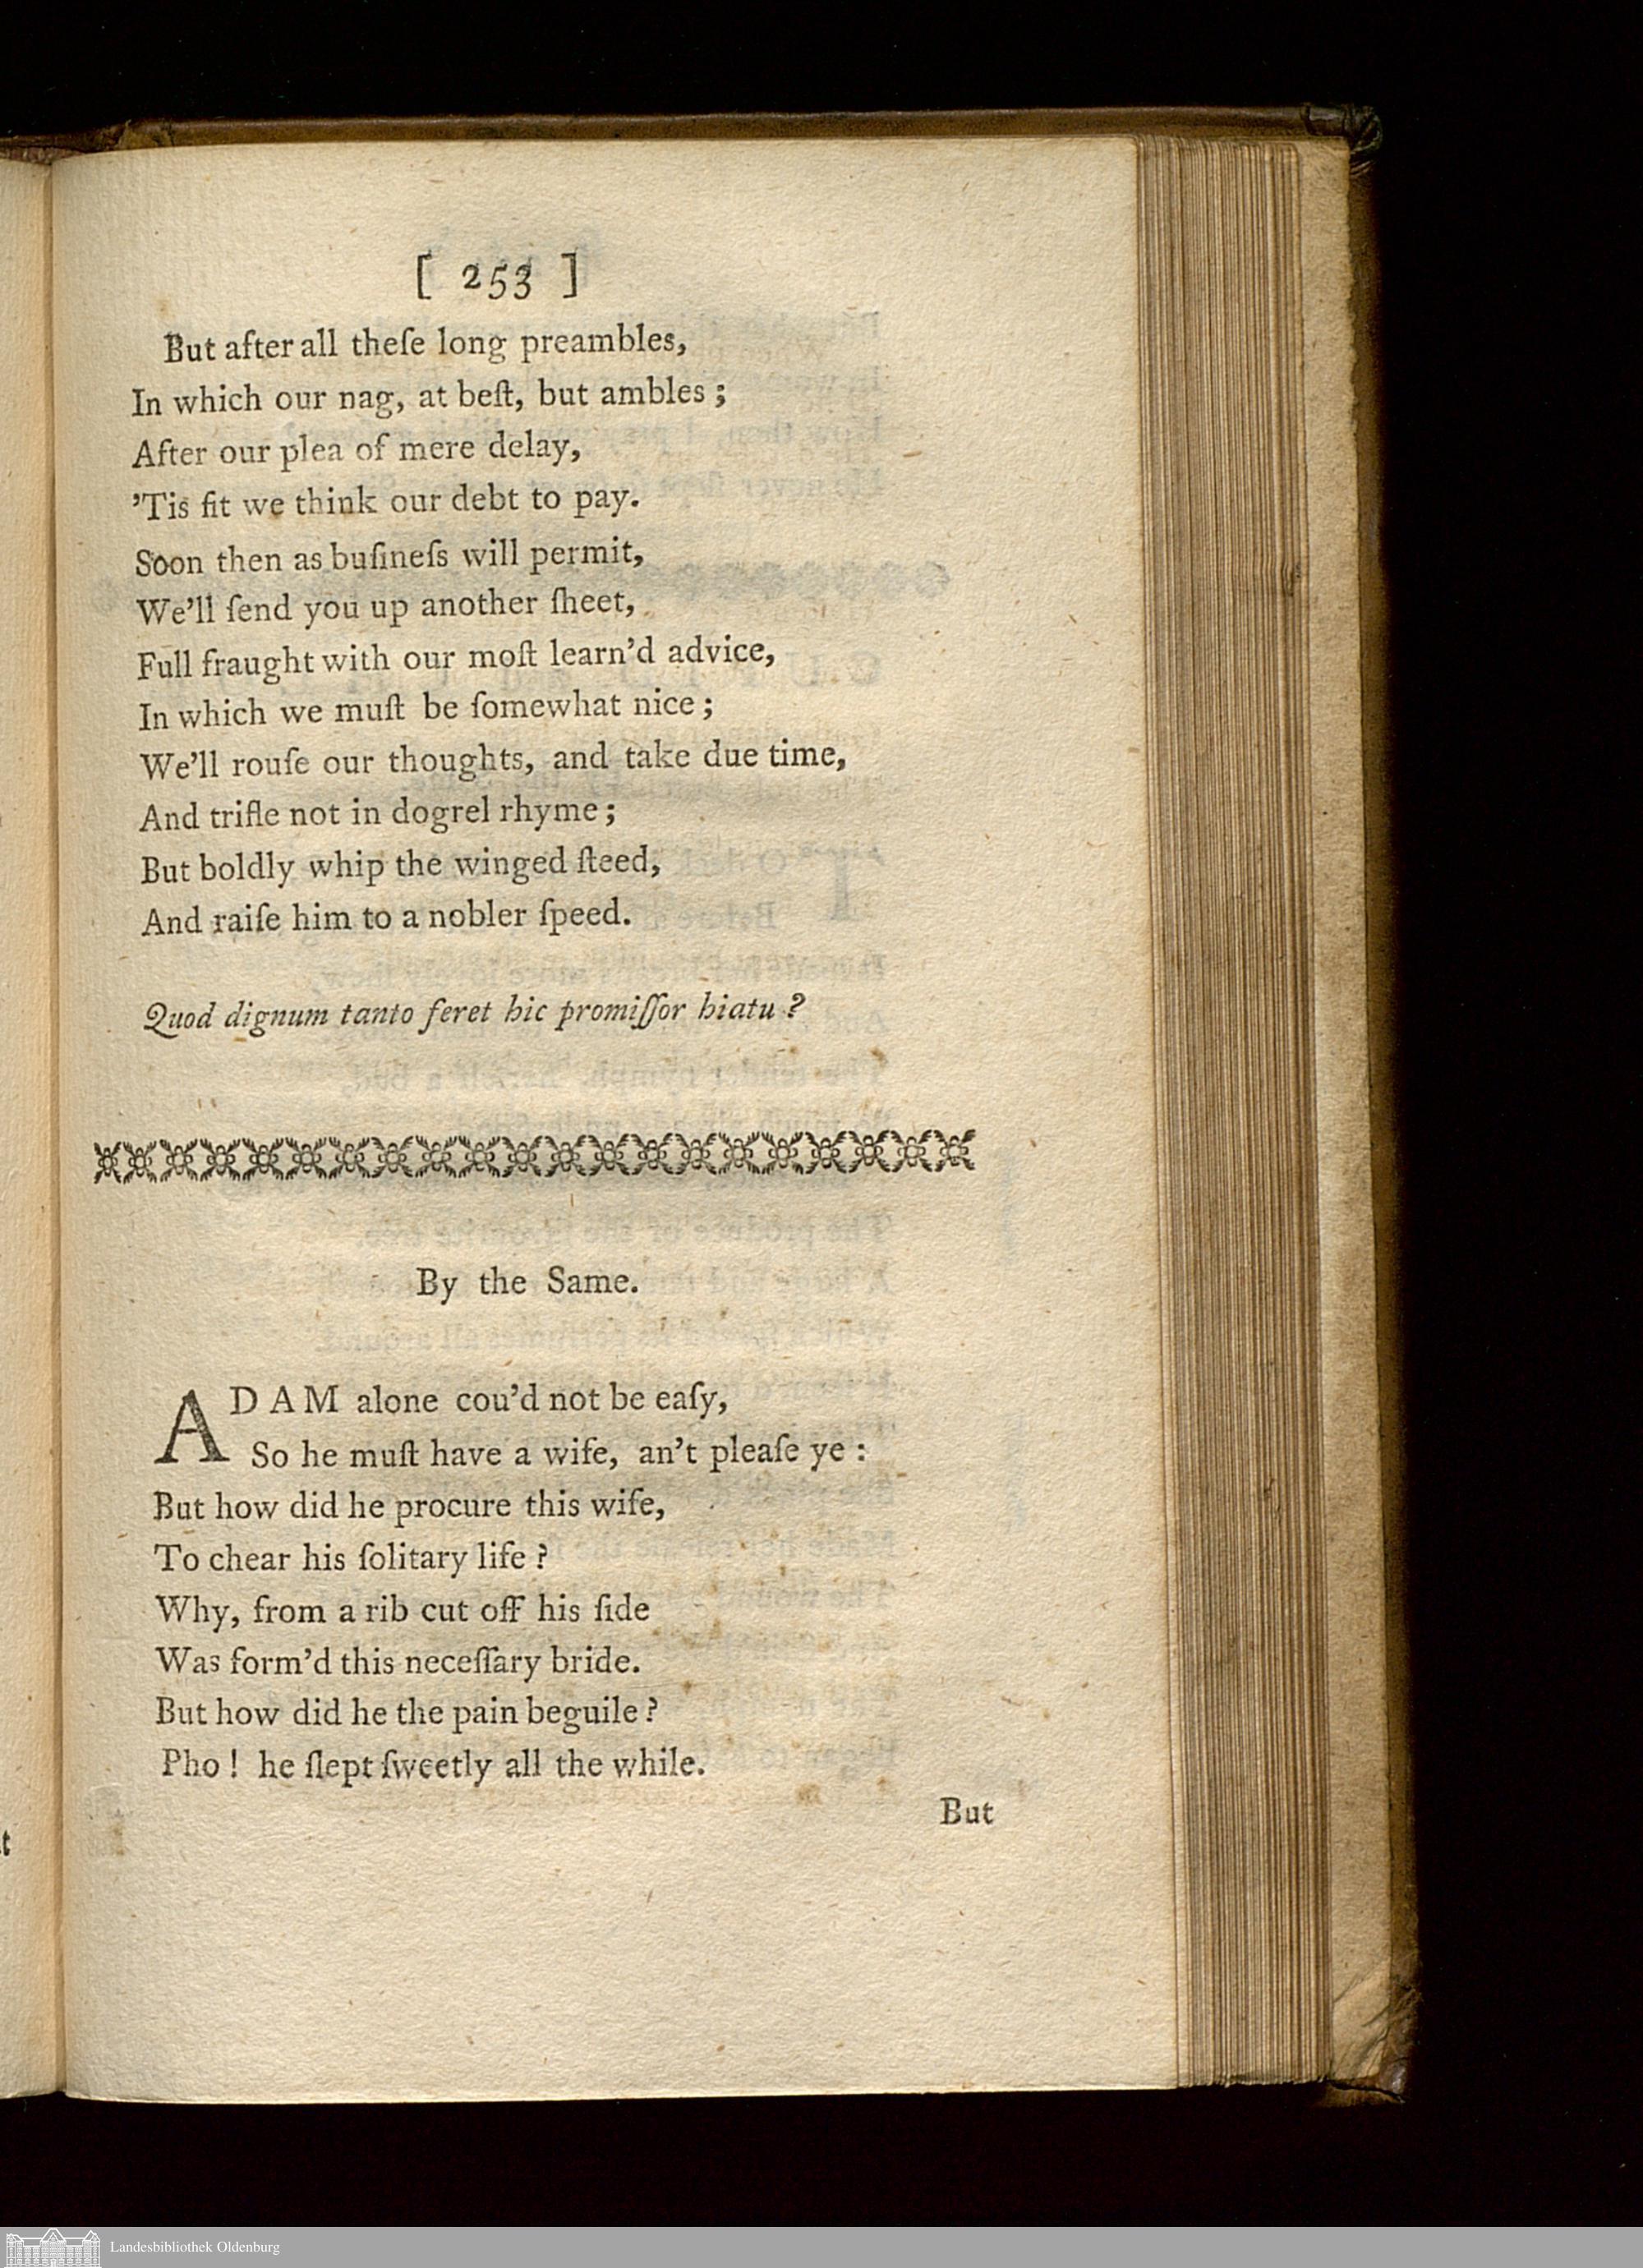 [ 253 ]
But after all theſe long preambles,
In which our nag, at beſt, but ambles ;
After our plea of mere delay,
’Tis fit we think our debt to pay.
Soon then as buſineſs will permit,
We’ll ſend you up another ſheet,
Full fraught with our moſt learn’d advice,
In which we muſt be ſomewhat nice ;
We’ll rouſe our thoughts, and take due time,
And trifle not in dogrel rhyme ;
But boldly whip the winged ſteed,
And raiſe him to a nobler ſpeed.
Quod dignum tanto feret hic promiſſor hiatu ?
By the Same.
ADAM alone cou’d not be eaſy,
So he muſt have a wife, an’t pleaſe ye :
But how did he procure this wife,
To chear his ſolitary life ?
Why, from a rib cut off his ſide
Was form’d this neceſſary bride.
But how did he the pain beguile ?
Pho ! he ſlept ſweetly all the while.
But
Landesbibliothek Oldenburg